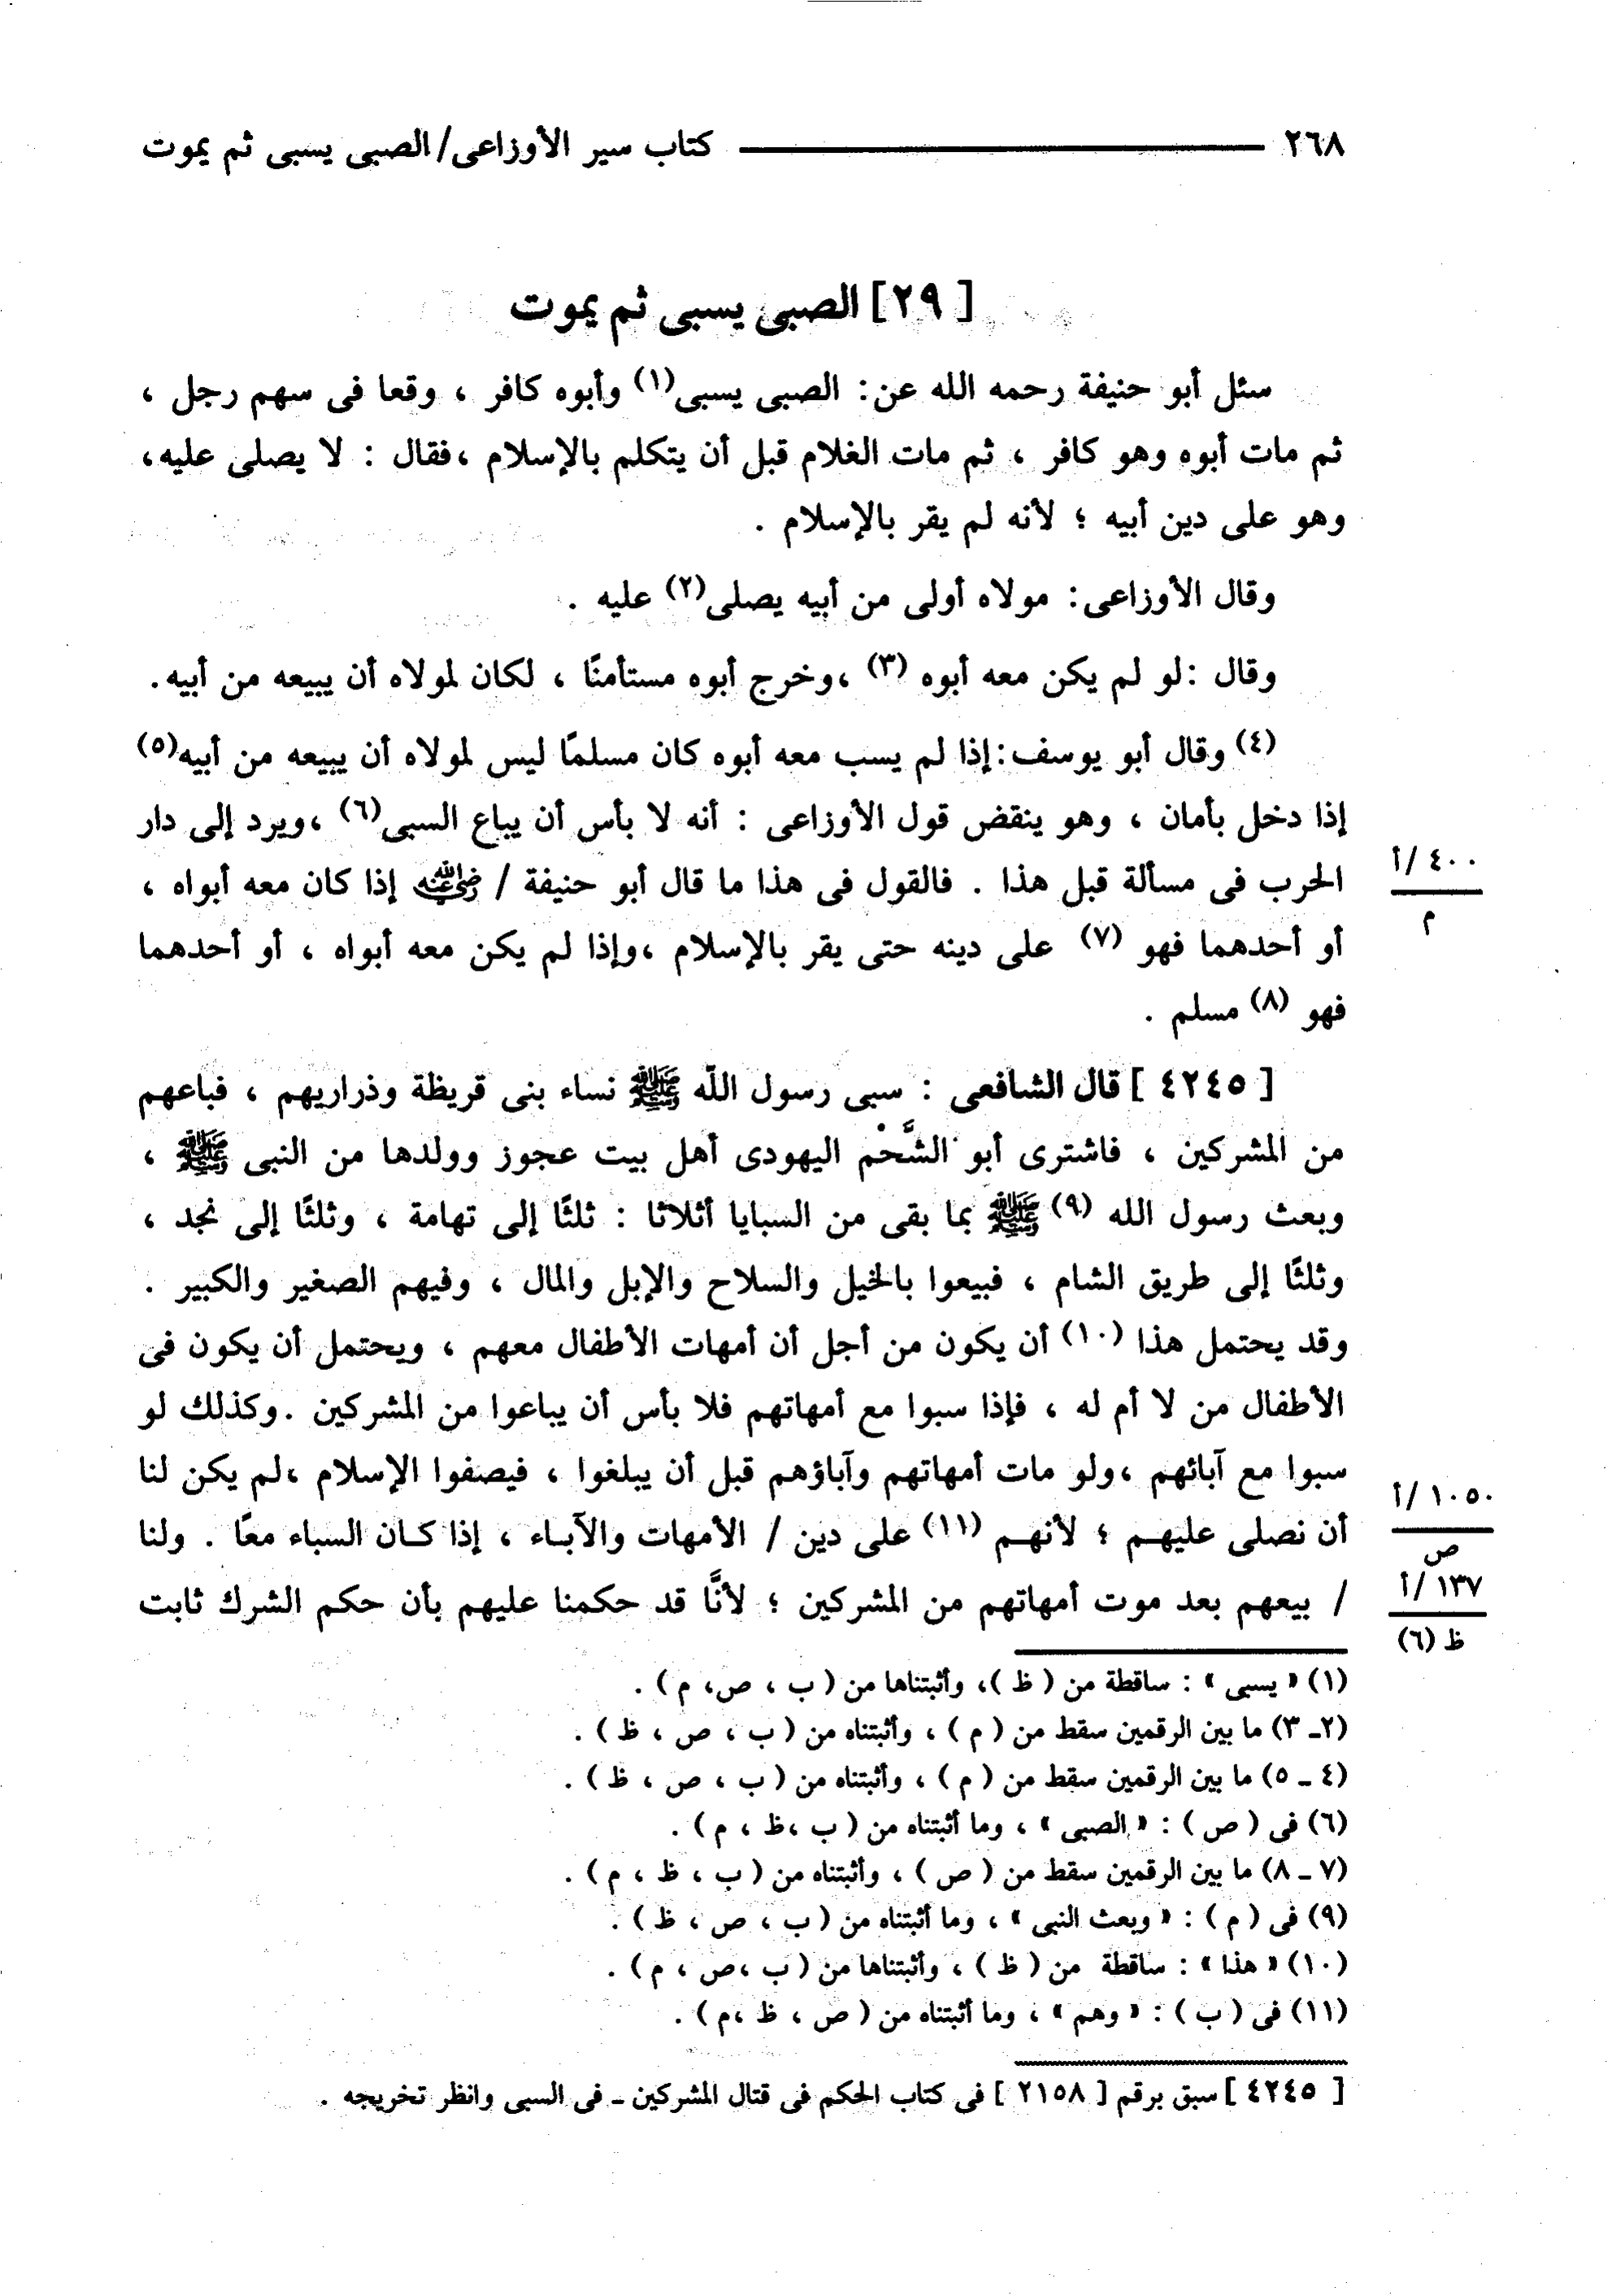 ٢٦٨ كتاب سير الأوزاعى/الصبى يسبى ثم يموت
[ ٢٩] الصبى يسبى ثم يموت
سئل أبو حنيفة رحمه الله عن: الصبى يسبى(١) وأبوه كافر ، وقعا فى سهم رجل ،
ثم مات أبوه وهو كافر ، ثم مات الغلام قبل أن يتكلم بالإسلام ،فقال : لا يصلى عليه،
وهو على دين أبيه ؛ لأنه لم يقر بالإسلام .
وقال الأوزاعى: مولاه أولى من أبيه يصلى(٢) عليه .
وقال :لو لم يكن معه أبوه (٣) ،وخرج أبوه مستأمنًا ، لكان لمولاه أن يبيعه من أبيه.
(٤) وقال أبو يوسف:إذا لم يسب معه أبوه كان مسلمًا ليس لمولاه أن يبيعه من أبيه(٥)
إذا دخل بأمان ، وهو ينقض قول الأوزاعى : أنه لا بأس أن يباع السبى(٦) ،ويرد إلى دار
الحرب فى مسألة قبل هذا . فالقول فى هذا ما قال أبو حنيفة / رضي الله عنه إذا كان معه أبواه ،
٤٠٠ /أ
م
أو أحدهما فهو (٧) على دينه حتى يقر بالإسلام ،وإذا لم يكن معه أبواه ، أو أحدهما
فهو (٨) مسلم .
[ ٤٢٤٥ ] قال الشافعى : سبى رسول اللّه ﷺ نساء بنى قريظة وذراريهم ، فباعهم
من المشركين ، فاشترى أبو الشَّحْم اليهودى أهل بيت عجوز وولدها من النبى ﷺ ،
وبعث رسول الله (٩) ﷺ بما بقى من السبايا أثلاثا : ثلثًا إلى تهامة ، وثلثًا إلى نجد ،
وثلثًا إلى طريق الشام ، فبيعوا بالخيل والسلاح والإبل والمال ، وفيهم الصغير والكبير .
وقد يحتمل هذا (١٠) أن يكون من أجل أن أمهات الأطفال معهم ، ويحتمل أن يكون فى
الأطفال من لا أم له ، فإذا سبوا مع أمهاتهم فلا بأس أن يباعوا من المشركين .وكذلك لو
سبوا مع آبائهم ،ولو مات أمهاتهم وآباؤهم قبل أن يبلغوا ، فيصفوا الإسلام ،لم يكن لنا
١٠٥٠ /أ
ص
أن نصلى عليهـم ؛ لأنهـم (١١) على دين / الأمهات والآبـاء ، إذا كـان السباء معًا . ولنا
١٣٧ /أ
ظ (٦)
/ بيعهم بعد موت أمهاتهم من المشركين ؛ لأنَّا قد حكمنا عليهم بأن حكم الشرك ثابت
(١) « يسبى » : ساقطة من ( ظ )، وأثبتناها من ( ب ، ص، م ) .
(٢ـ ٣) ما بين الرقمين سقط من ( م ) ، وأثبتناه من ( ب ، ص ، ظ ) .
(٤ ـ ٥) ما بين الرقمين سقط من ( م ) ، وأثبتناه من ( ب ، ص ، ظ ) .
(٦) فى ( ص ) : « الصبى » ، وما أثبتناه من ( ب ،ظ ، م ) .
(٧ ـ ٨) ما بين الرقمين سقط من ( ص ) ، وأثبتناه من ( ب ، ظ ، م ) .
(٩) فى ( م ) : « وبعث النبى » ، وما أثبتناه من ( ب ، ص ، ظ ) .
(١٠) « هذا » : ساقطة من ( ظ ) ، وأثبتناها من ( ب ،ص ، م ) .
(١١) فى ( ب ) : « وهم » ، وما أثبتناه من ( ص ، ظ ،م ) .
[ ٤٢٤٥ ] سبق برقم [ ٢١٥٨ ] فى كتاب الحكم فى قتال المشركين ـ فى السبى وانظر تخريجه .